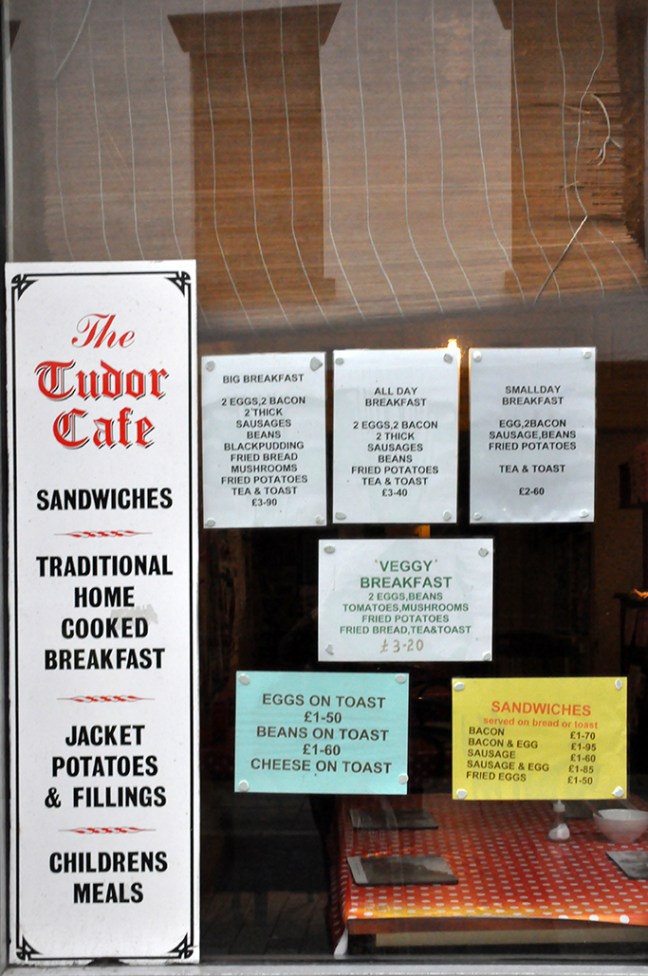 The
Tudor
Cafe
SANDWICHES
TRADITIONAL
HOME
COOKED
BREAKFAST
JACKET
POTATOES
& FILLINGS
CHILDRENS
MEALS
BIG BREAKFAST
2 EGGS,2 BACON
2 THICK
SAUSAGES
BEANS
BLACKPUDDING
FRIED BREAD
MUSHROOMS
FRIED POTATOES
TEA & TOAST
£3-90
ALL DAY
BREAKFAST
2 EGGS,2 BACON
2 THICK
SAUSAGES
BEANS
FRIED POTATOES
TEA & TOAST
£3-40
SMALLDAY
BREAKFAST
EGG,2BACON
SAUSAGE,BEANS
FRIED POTATOES
TEA & TOAST
£2-60
'VEGGY'
BREAKFAST
2 EGGS,BEANS
TOMATOES,MUSHROOMS
FRIED POTATOES
FRIED BREAD,TEA&TOAST
£3-20
EGGS ON TOAST
£1-50
BEANS ON TOAST
£1-60
CHEESE ON TOAST
SANDWICHES
served on bread or toast
BACON £1-70
BACON & EGG £1-95
SAUSAGE £1-60
SAUSAGE & EGG £1-85
FRIED EGGS £1-50